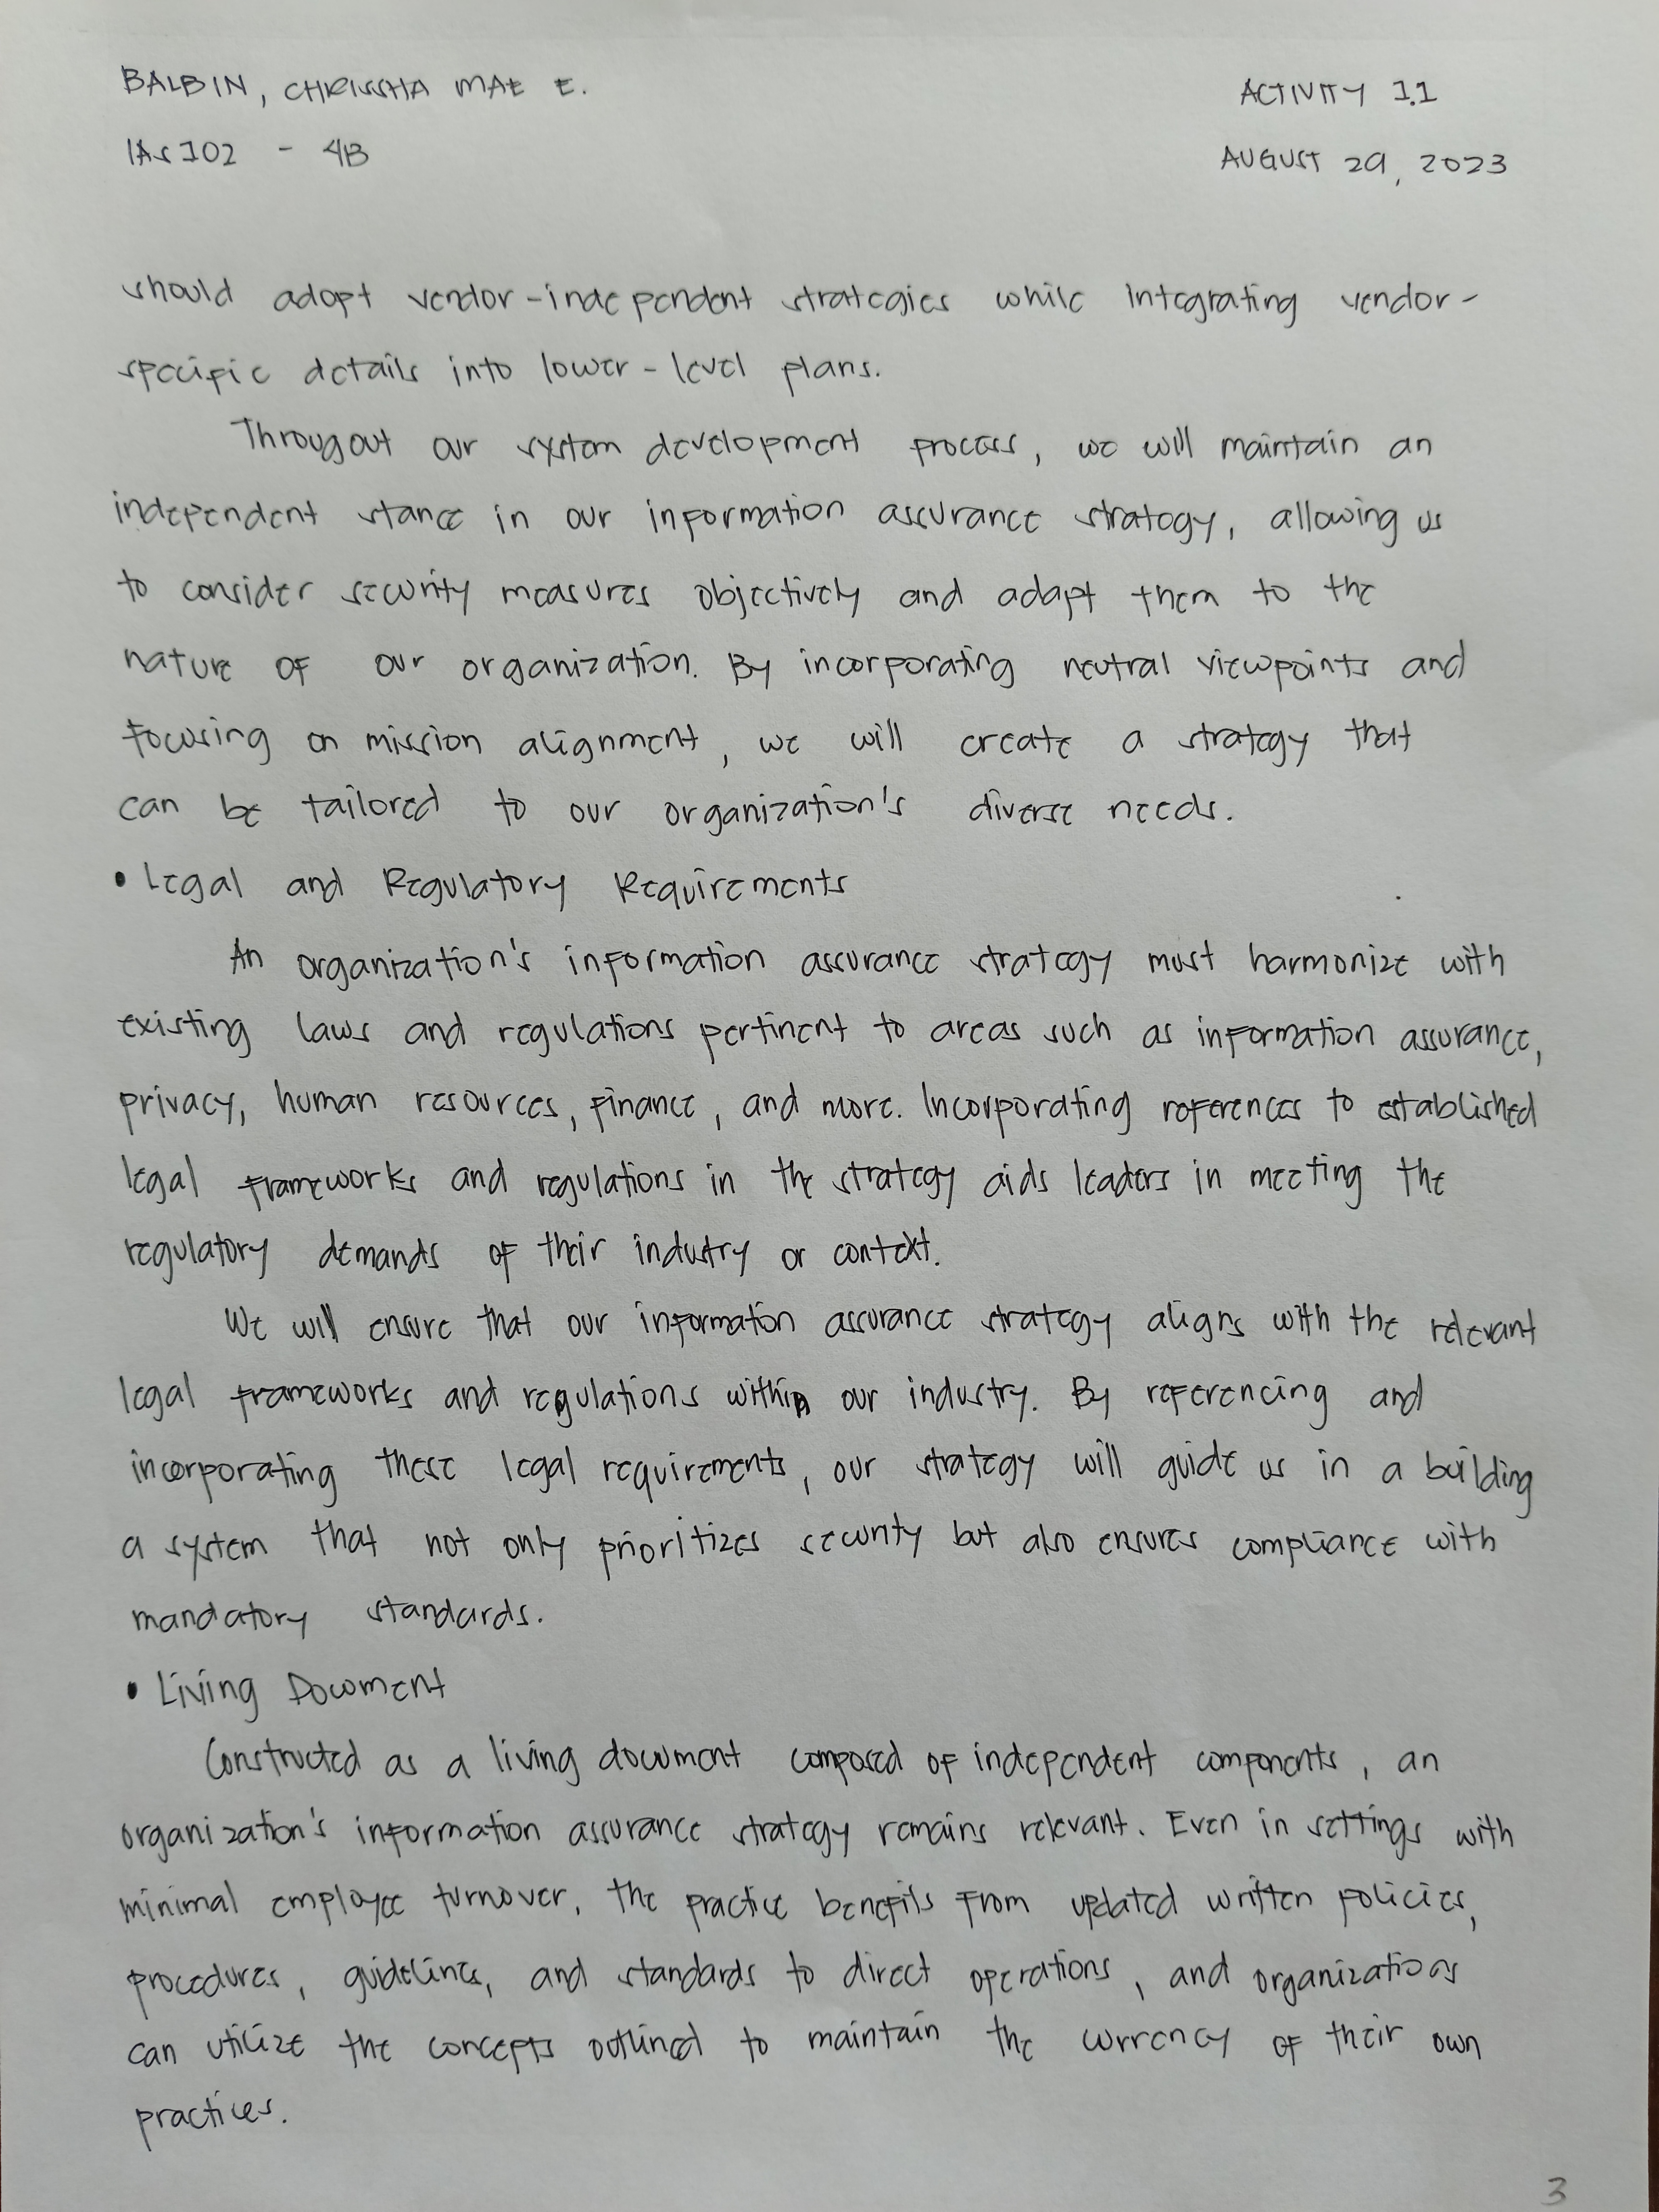 BALBIN, CHRISSHA MAE E.
ACTIVITY 1.1
IAS 102 - 4B
AUGUST 29, 2023
should adopt vendor-independent strategies while integrating vendor-
specific details into lower-level plans.
Througout our system development process, we will maintain an
independent stance in our information assurance strategy, allowing us
to consider security measures objectively and adapt them to the
nature of our organization. By incorporating neutral viewpoints and
focusing on mission alignment, we will create a strategy that
can be tailored to our organization's diverse needs.
• Legal and Regulatory Requirements
An organization's information assurance strategy must harmonize with
existing laws and regulations pertinent to areas such as information assurance,
privacy, human resources, finance, and more. Incorporating references to established
legal frameworks and regulations in the strategy aids leaders in meeting the
regulatory demands of their industry or context.
We will ensure that our information assurance strategy aligns with the relevant
legal frameworks and regulations within our industry. By referencing and
incorporating these legal requirements, our strategy will guide us in a building
a system that not only prioritizes security but also ensures compliance with
mandatory standards.
• Living Document
Constructed as a living document composed of independent components, an
organization's information assurance strategy remains relevant. Even in settings with
minimal employee turnover, the practice benefits from updated written policies,
procedures, guidelines, and standards to direct operations, and organizations
can utilize the concepts outlined to maintain the currency of their own
practices.
3